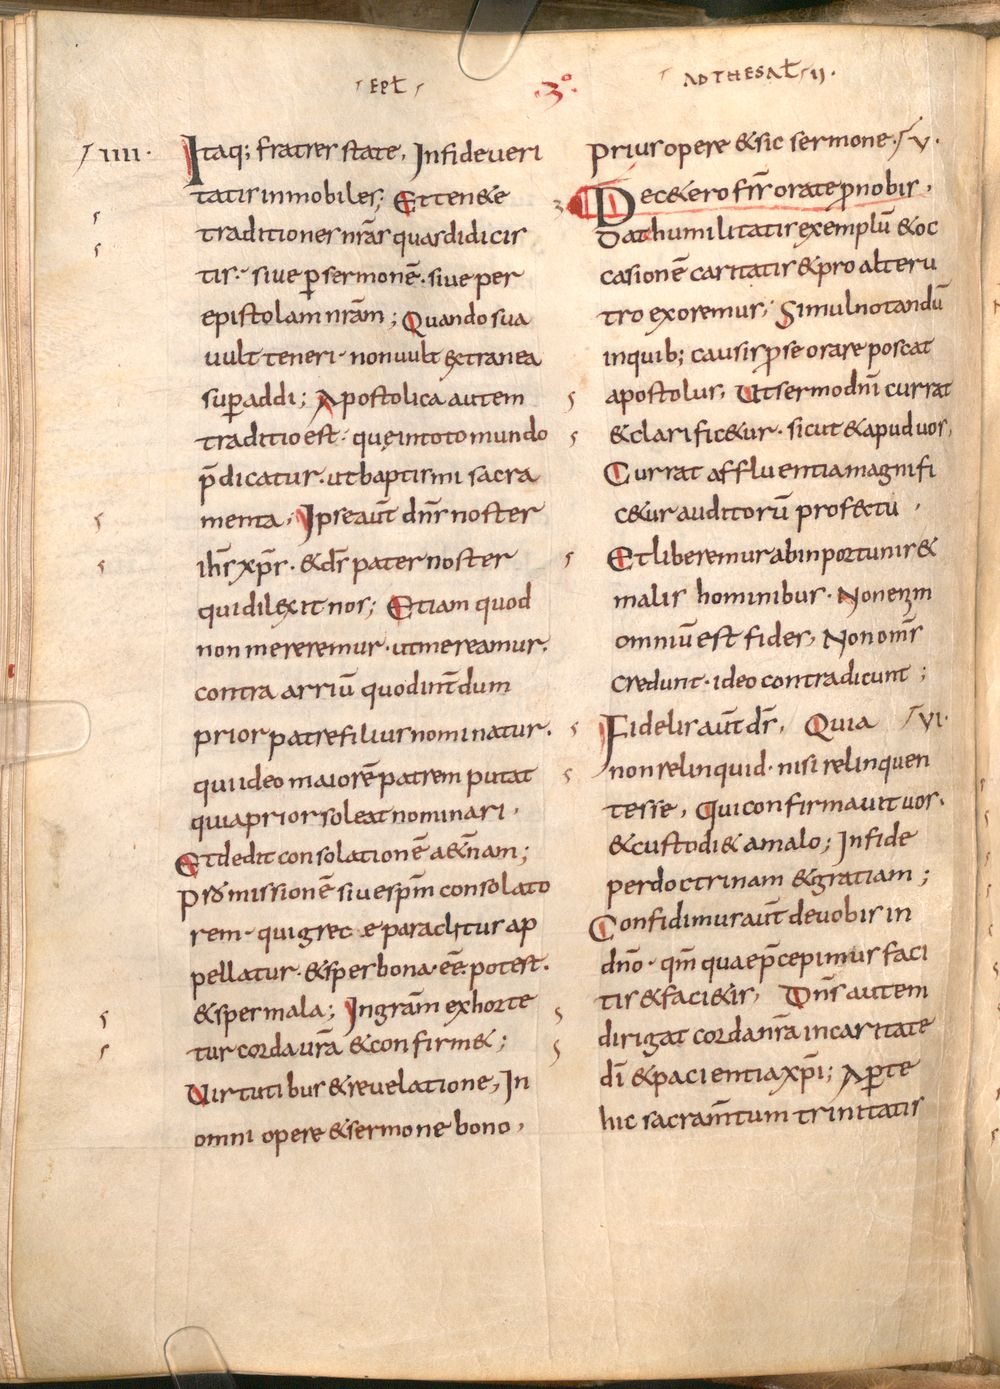 EPŁ
3º
AD THESAŁ II.
IIII.
Itaq; fratres state, In fide veri
tatis inmobiles; Et ten&e
traditiones nrās quas didicis
tis· sive p sermonē· sive per
epistolam nrām; Quando sua
vult teneri· non vult extranea
sup addi; Apostolica autem
traditio est· quę in toto mundo
p̄dicatur· ut baptismi sacra
menta, Ipse aut̄ dn̄s noster
ih̄s xp̄s· & d̄s pater noster
qui dilexit nos; Etiam quod
non mereremur· ut mereamur.
contra arriū quod int̄dum
prior patre filius nominatur.
qui ideo maiorē patrem putat
quia prior soleat nominari·
Et dedit consolationē aet̄nam;
Promissionē sive sp̄m consolato
rem· qui grec e paraclitus ap
pellatur· & spes bona· eē potest.
& spes mala; In gram̄ exhorte
tur corda vrā & confirm&;
Virtutibus & revelatione, In
omni opere & sermone bono,
Prius opere & sic sermone. V.
3
Dec&ero frs̄ orate p nobis,
Dat humilitatis exemplū & oc
casionē caritatis & pro alteru
tro exoremus, Simul notandū
in quib; causis p se orare poscat
apostolus, Ut sermo dn̄i currat
& clarific&ur· sicut & apud vos,
Currat affluentia magnifi
c&ur auditorū prof&tu,
Et liberemur ab inportunis &
malis hominibus· Non enim
omniū est fides, Non om̄s
credunt· ideo contradicunt;
Fidelis aut̄ d̄s, Quia VI.
non relinquid· nisi relinquen
tesse, Qui confirmavit vos.
& custodi& a malo; In fide
per doctrinam & gratiam;
Confidimus aut̄ de vobis in
dn̄o· qm̄ quae p̄cepimus faci
tis & faci&is, Dn̄s autem
dirigat corda nrā in caritate
dī & pacientia xp̄i; Aperte
hic sacram̄tum trinitatis